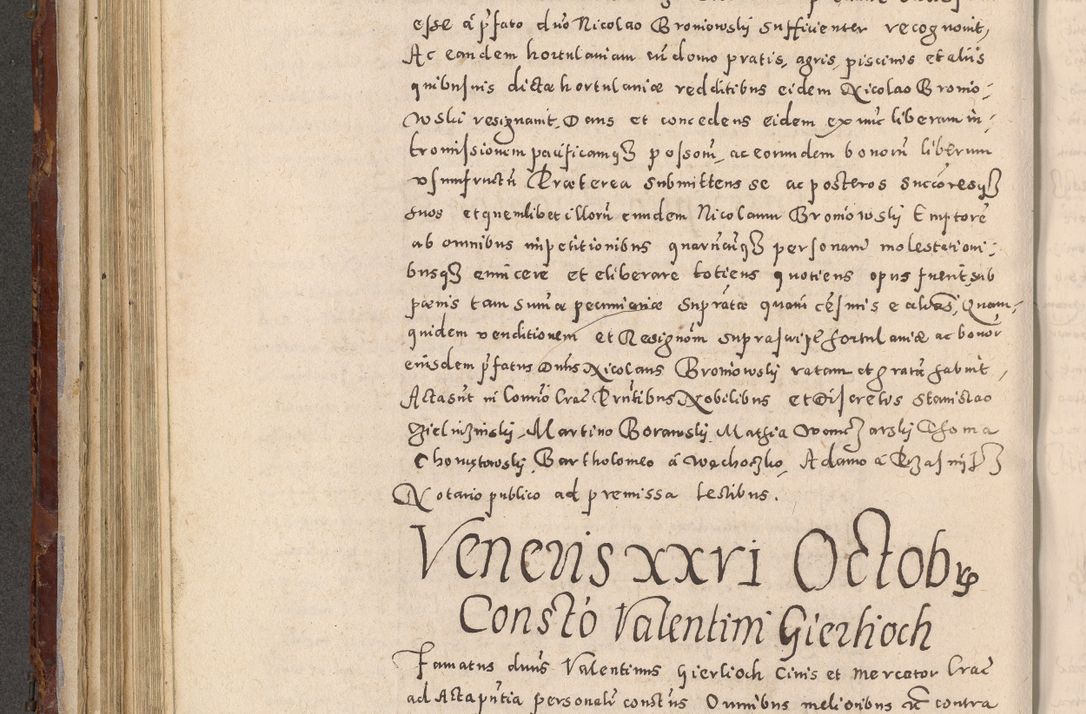 esse a pfato dno Nicolao Broniowsky sufficienter recognovit,
Ac eandem hortulaniam cu domo pratis, agris, piscinis et aliis
quibusvis dictae hortulaniae redditibus eidem Nicolao Bronio-
wski resignavit, Dans et concedens eidem ex nunc liberam in-
tromissionem pacificamqз possom, ac eorundem bonoru liberum
usumfructu Praeterea submittens se ac posteros succoresqз
suos et quemlibet illoru eundem Nicolaum Broniowsky Emptore
ab omnibus impetitionibus quarucuqз personaru molestationi-
busqз evincere et eliberare toties quotiens opus fuerit, sub
paenis tam summae pecuniariae supratae quam
quidem venditionem et Resignom suprascript hortulaniae ac bonor
eiusdem pfatus Dnus Nicolaus Broniowsky ratam et grata habuit,
Acta sut in Convo Crac Pntibus Nobilibus et Discretis Stanislao
Zielnizinsky, Martino Borawsky, Mathia Thoma
Bartholomeo a Wachoczko, Adamo a
Notario publico ad premissa testibus.
Veneris xxvi Octobr
Consto Valentini Gierlioch
Famatus dnus Valentinus Gierlioch Civis et Mercator Crac
ad Acta pntia personalr constus Omnibus melioribus contra